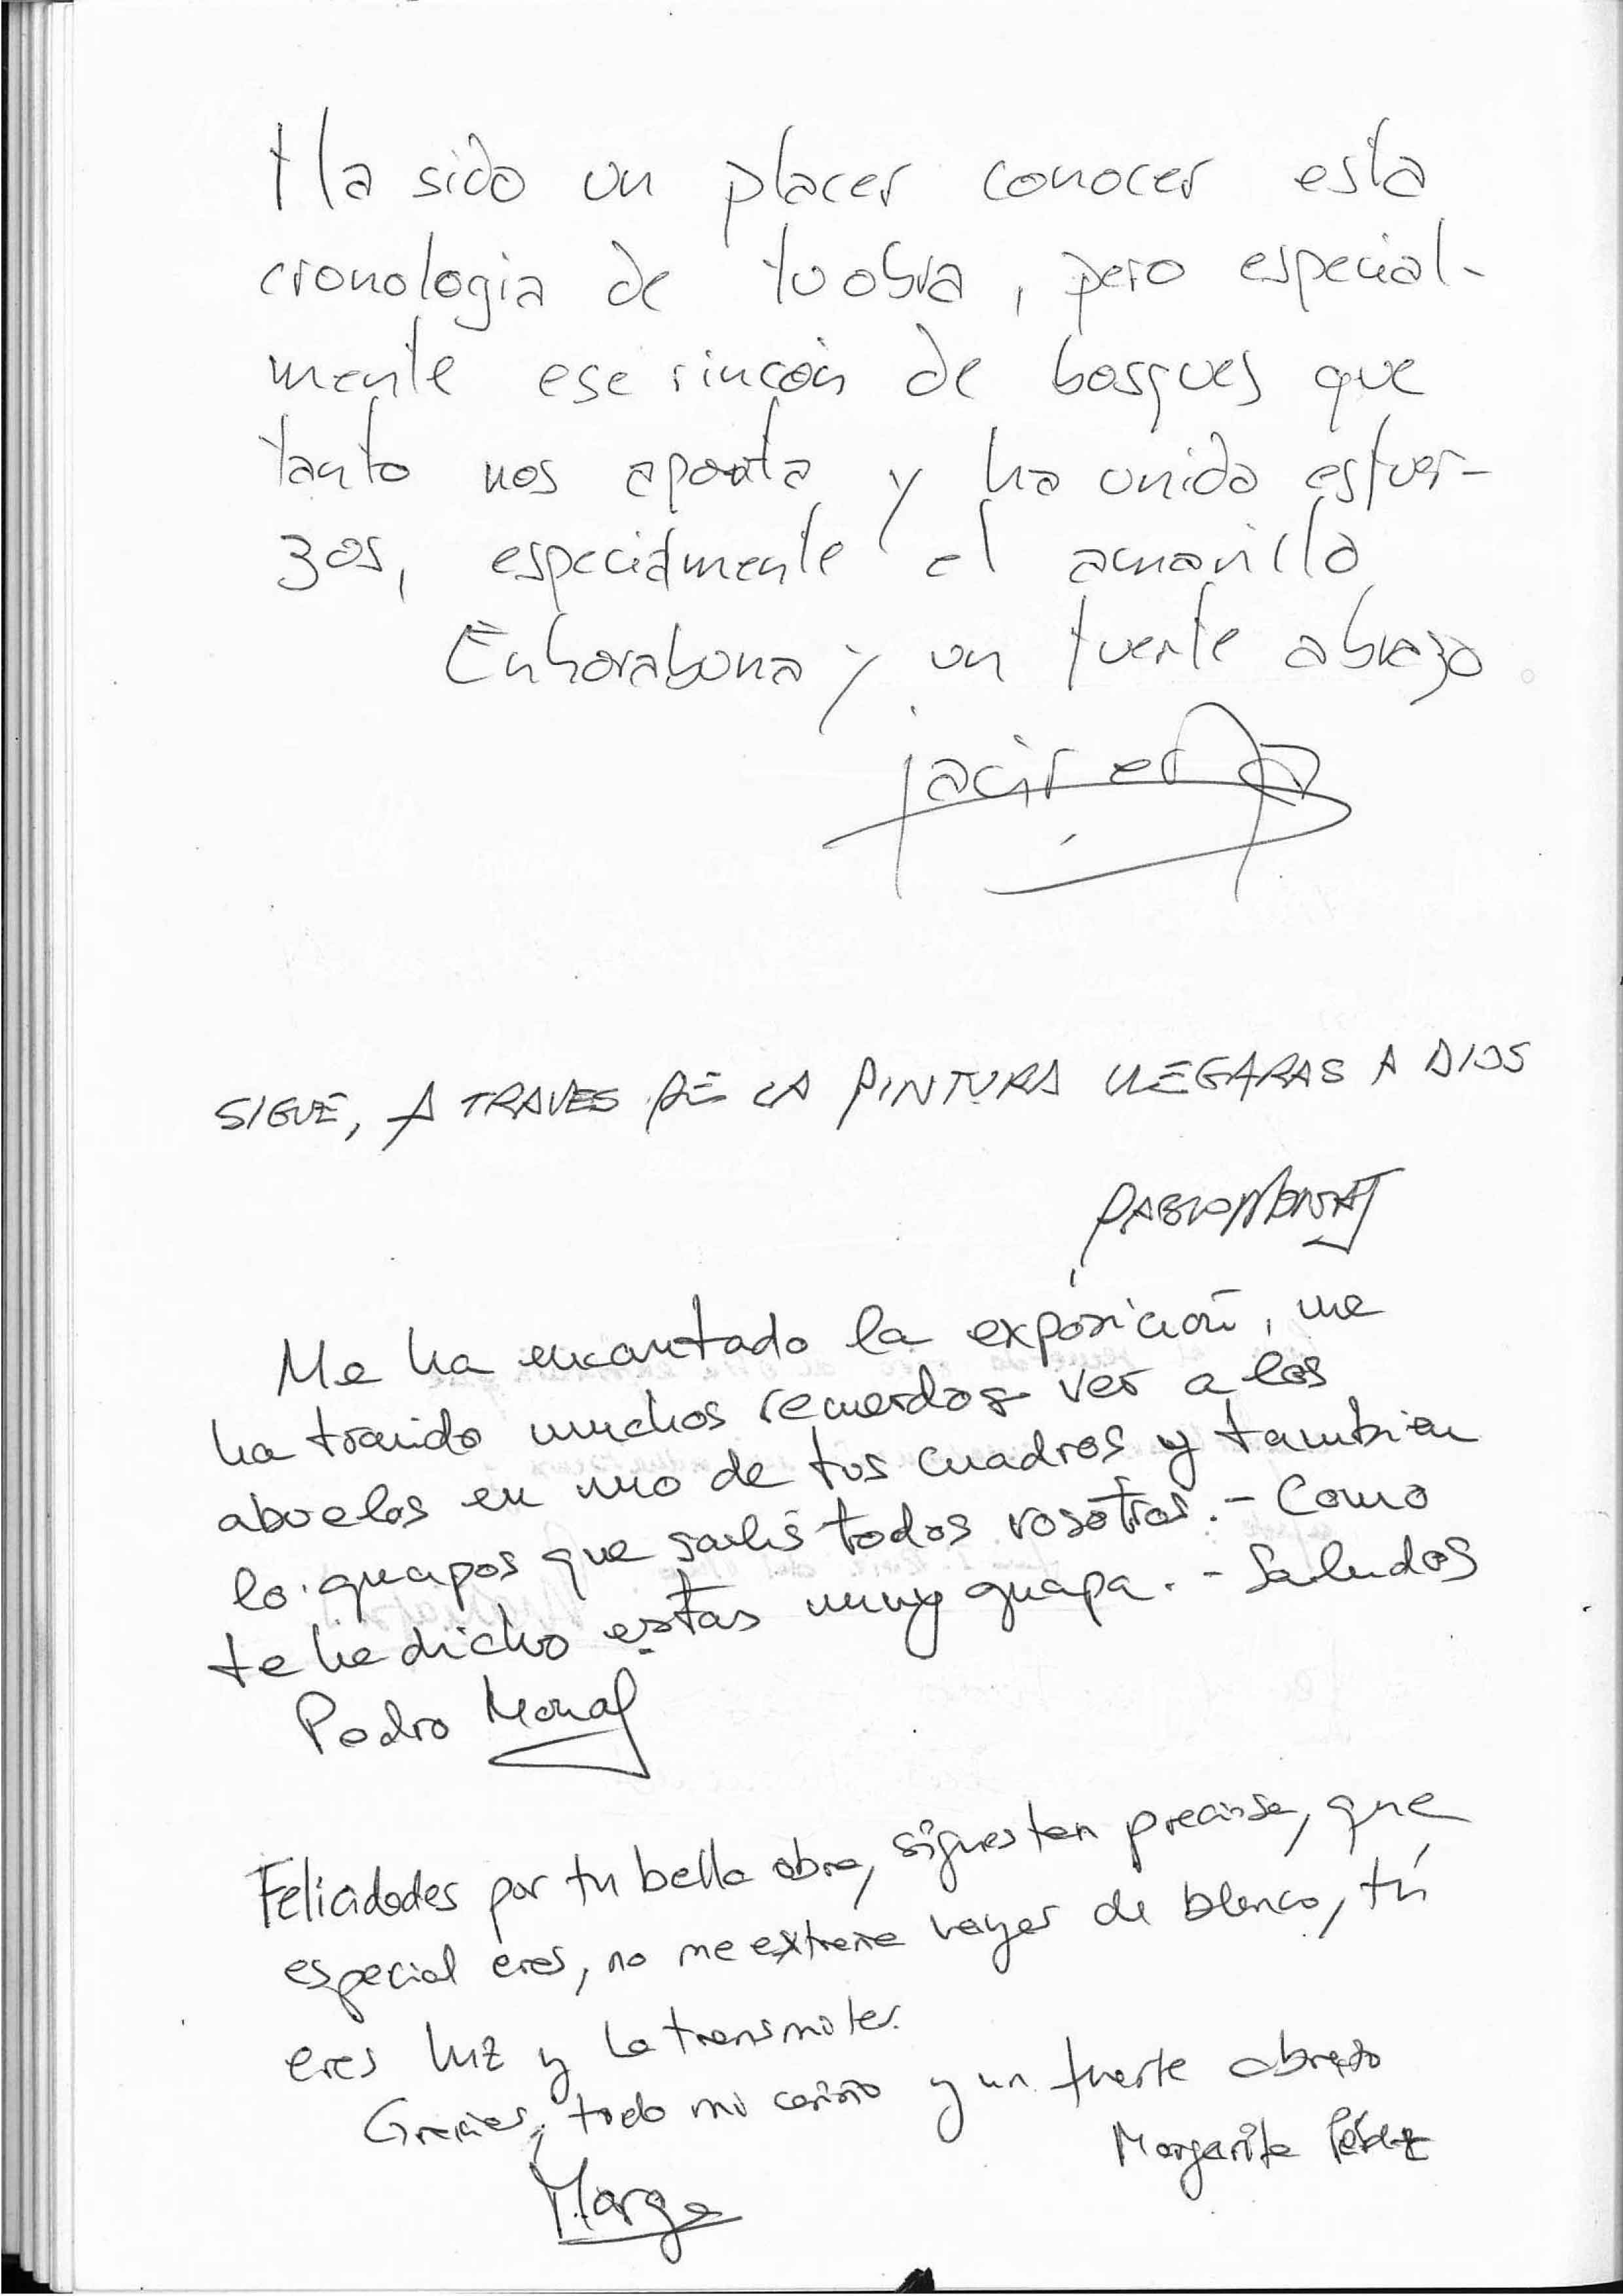 Ha sido un placer conocer esta
cronologia de tu obra, pero especial-
mente ese rincón de bosques que
tanto nos aporta y ha unido esfuer-
zos, especialmente el amarillo
Enhorabuna y un fuerte abrazo
SIGUE, A TRAVES DE LA PINTURA LLEGARAS A DIOS
PABLO MONAJ
Me ha encantado la exposición, me
ha traido muchos recuerdos ver a los
abuelos en uno de tus cuadros y tambien
lo guapos que salis todos vosotros.- Como
te he dicho estas muy guapa.- Saludos
Pedro Monaj
Felicidades por tu bella obra, sigues tan preciosa, que
especial eres, no me extraña vayas de blanco, tú
eres luz y la transmites.
Gracias, todo mi cariño y un fuerte abrazo
Margarita Pérez
Marga